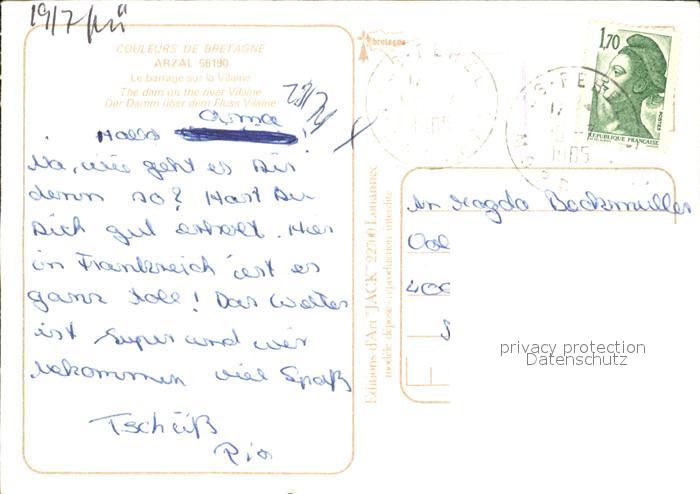 19/7
COULEURS DE BRETAGNE
ARZAL 56190
Le barrage sur la Vilaine
The dam on the river Vilaine
Der Damm über dem Fluss Vilaine
bretagne
1,70
POSTES
REPUBLIQUE FRANCAISE
1985
1985
Hallo Oma !
Na, wie geht es Dir
denn so? Hast Du
Dich gut erholt. Hier
in Frankreich ist es
ganz toll! Das Wetter
ist super und wir
bekommen viel Spaß
Tschüß
Pia
Editions d'Art "JACK" 22700 Louannec
modèle déposé - reproduction interdite
An Magda Backmüller
400
privacy protection
Datenschutz